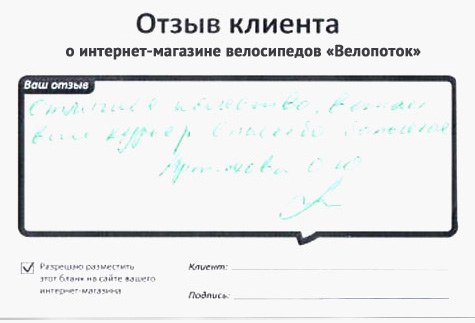 Отзыв клиента
о интернет-магазине велосипедов «Велопоток»
Ваш отзыв
Отличное качество,
курьер Спасибо большое
Разрешаю разместить
этот бланк на сайте вашего
интернет-магазина
Клиент:
Подпись: